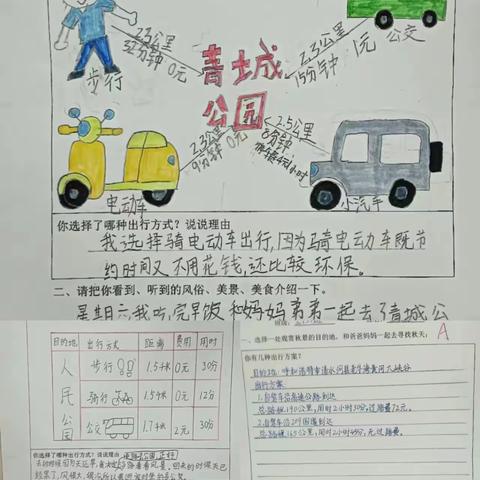 2.3公里
32分钟 0元
步行
2.3公里
15分钟 1元
公交
青城
公园
2.3公里
9分钟 0元
电动车
2.5公里
8分钟
小汽车
你选择了哪种出行方式?说说理由
我选择骑电动车出行,因为骑电动车既节
约时间又不用花钱,还比较环保。
二、请把你看到、听到的风俗、美景、美食介绍一下。
星期六我吃完早饭和妈妈弟弟一起去了青城公
目的地 出行方式 距离 费用 用时
人民公园
步行 1.5千米 0元 30分
骑行 1.5千米 0元 12分
公交 1.7千米 2元 30分
你选择了哪种出行方式?说说理由
一、选择一处观赏秋景的目的地,和爸爸妈妈一起去寻找秋天: A
你有几种出行方案?
目的地:呼和浩特市清水河县老牛湾黄河大峡谷
出行方案
1.自驾车沿高速公路到达
总路程190公里,用时2小时30分,过路费72元。
2.自驾车沿209国道到达
总路程165公里,用时2小时45分,无过路费。